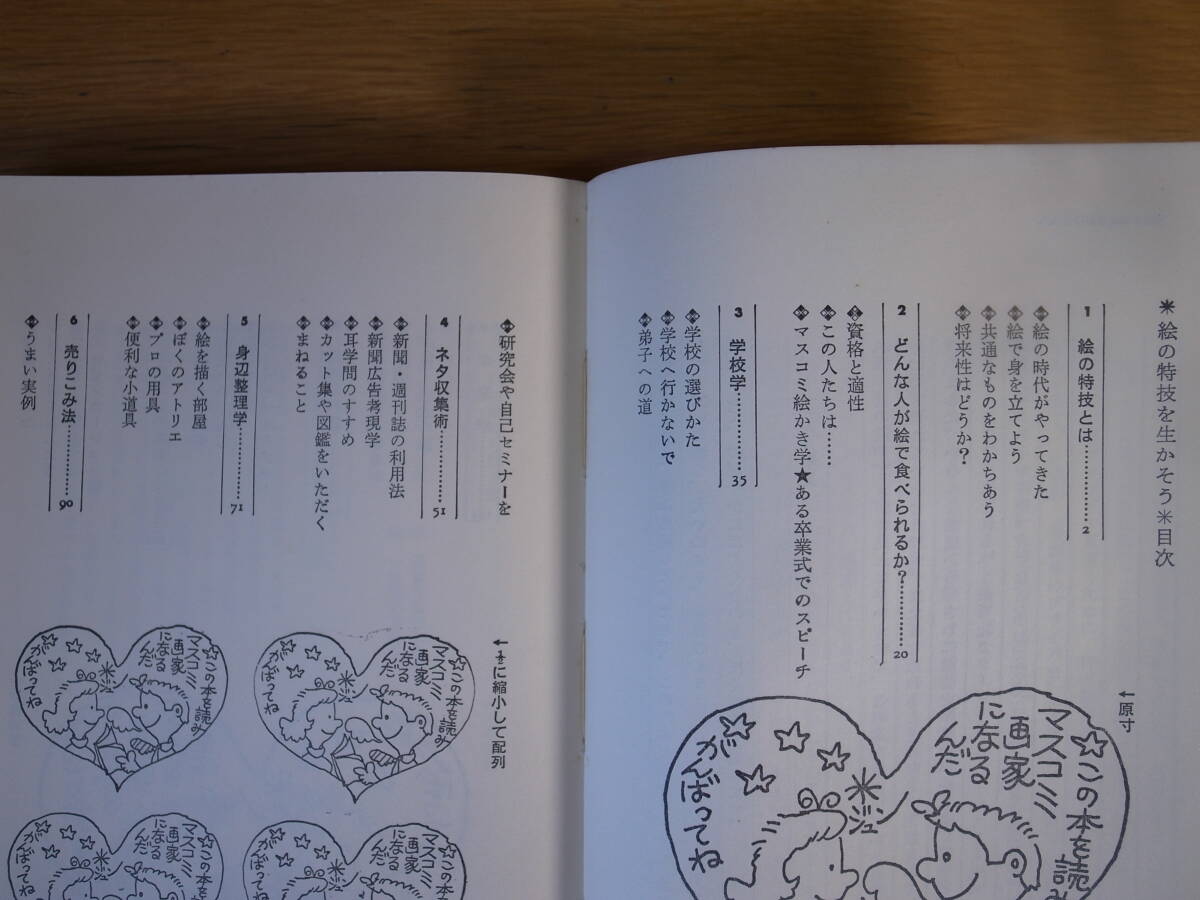 ✳絵の特技を生かそう✳目次
1 絵の特技とは…………2
絵の時代がやってきた
絵で身を立てよう
共通なものをわかちあう
将来性はどうか?
2 どんな人が絵で食べられるか?…………20
資格と適性
この人たちは……
マスコミ絵かき学★ある卒業式でのスピーチ
3 学校学…………35
学校の選びかた
学校へ行かないで
弟子への道
←原寸
☆この本を読み
マスコミ
画家
になる
んだ
ジュ
がんばってね
研究会や自己セミナーを
4 ネタ収集術…………51
新聞・週刊誌の利用法
新聞広告考現学
耳学問のすすめ
カット集や図鑑をいただく
まねること
5 身辺整理学…………71
絵を描く部屋
ぼくのアトリエ
プロの用具
便利な小道具
6 売りこみ法…………90
うまい実例
に縮小して配列
☆この本を読み
マスコミ
画家
になる
んだ
ジュ
がんばってね
☆この本を読み
マスコミ
画家
になる
んだ
ジュ
がんばってね
☆この本を読み
マスコミ
画家
になる
んだ
ジュ
がんばってね
☆この本を読み
マスコミ
画家
になる
んだ
ジュ
がんばってね